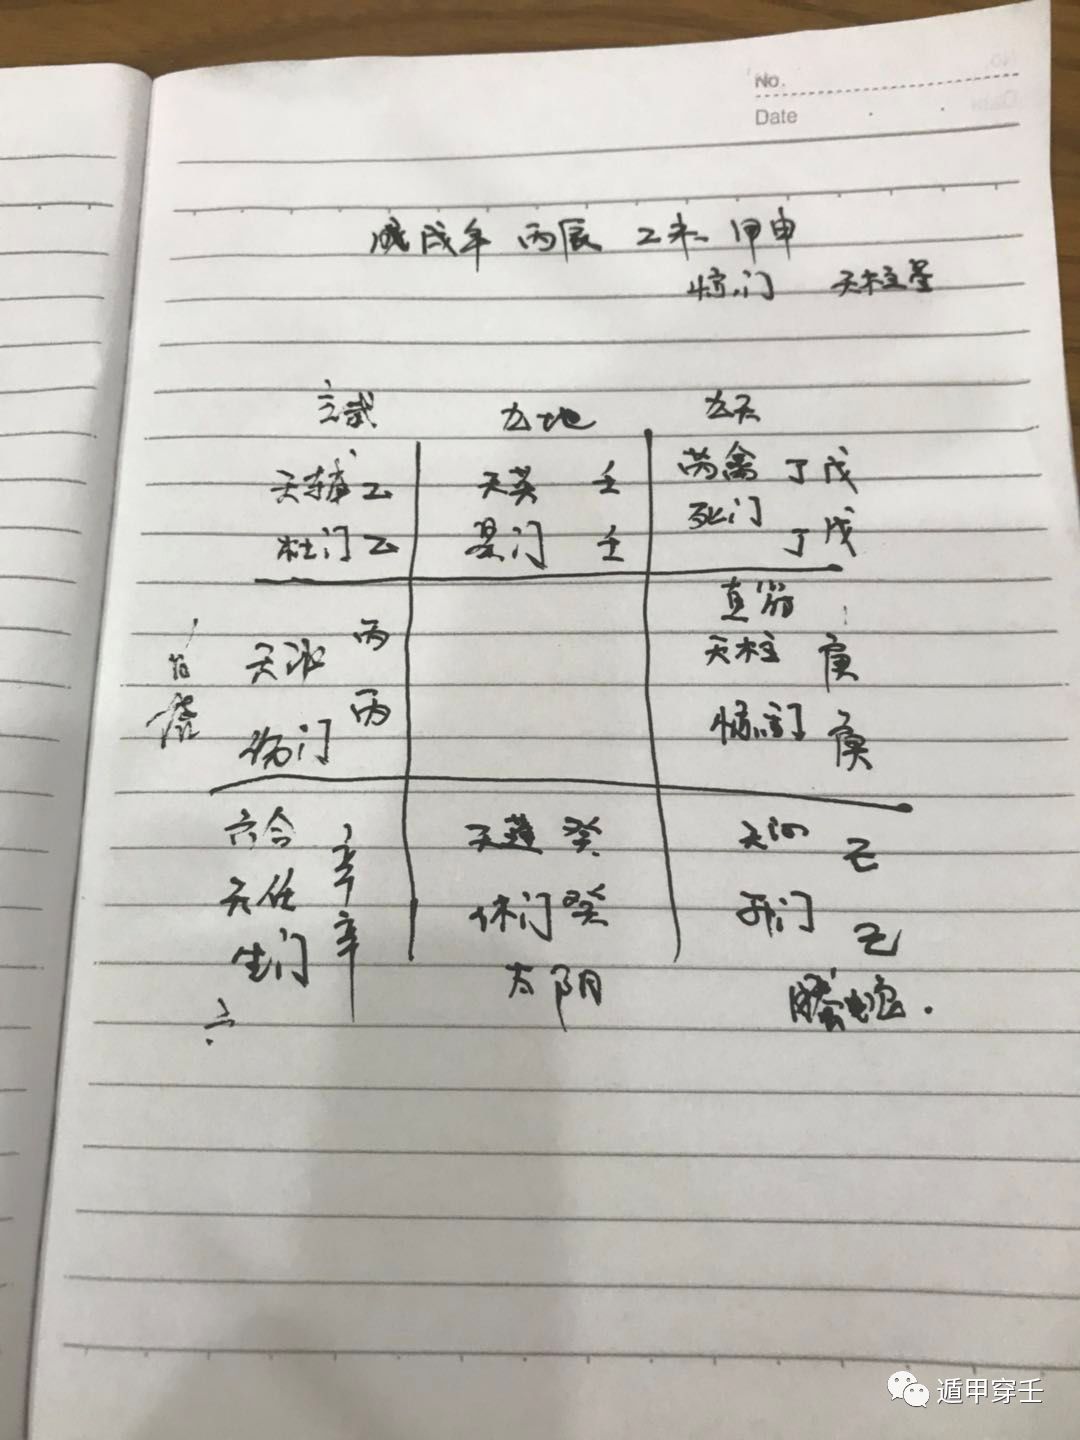 No.
Date
戊戌年 丙辰 乙未 甲申
惊门 天柱星
玄武 九地 九天
天辅 乙 天英 壬 芮禽 丁 戊
杜门 乙 景门 壬 死门 丁 戊
直符
白虎 天冲 丙 天柱 庚
伤门 丙 惊门 庚
六合 天蓬 癸 天心 己
天任 辛 休门 癸 开门 己
生门 辛 太阴 螣蛇.
六
遁甲穿壬